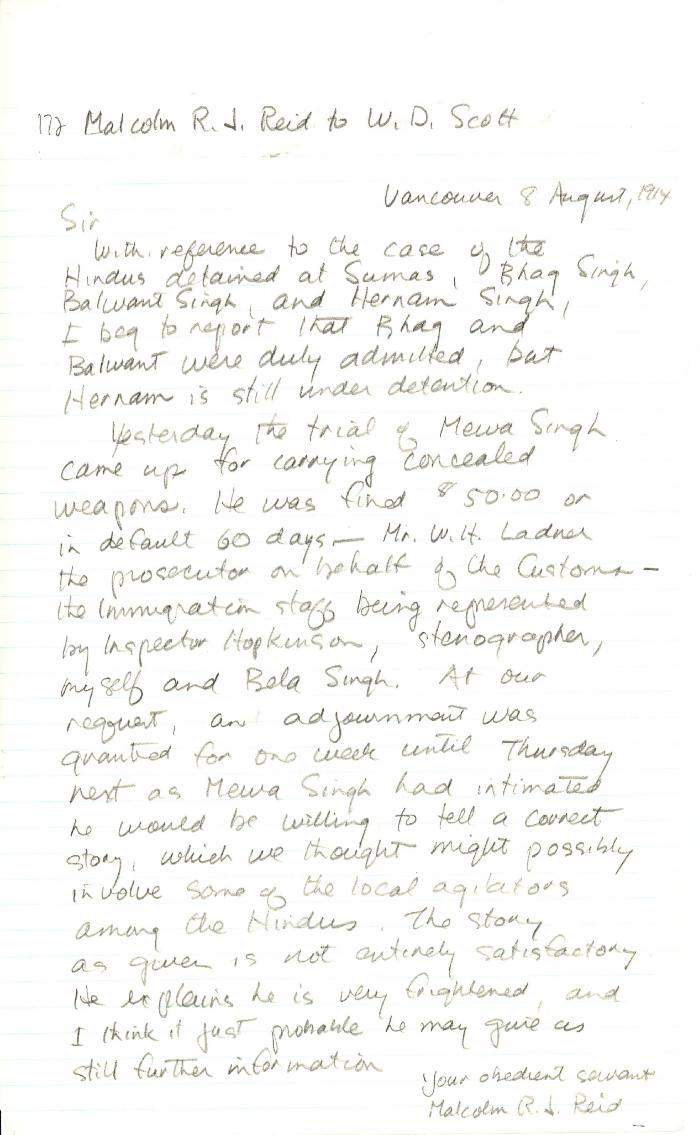 172 Malcolm R. J. Reid to W. D. Scott
Vancouver 8 August, 1914
Sir
With reference to the case of the
Hindus detained at Sumas, Bhag Singh,
Balwant Singh, and Hernam Singh,
I beg to report that Bhag and
Balwant were duly admitted, but
Hernam is still under detention.
Yesterday the trial of Mewa Singh
came up for carrying concealed
weapons. He was fined $50.00 or
in default 60 days — Mr. W. H. Ladner
the prosecutor on behalf of the Customs —
the Immigration staff being represented
by Inspector Hopkinson, stenographer,
myself and Bela Singh. At our
request, an adjournment was
granted for one week until Thursday
next as Mewa Singh had intimated
he would be willing to tell a correct
story, which we thought might possibly
involve some of the local agitators
among the Hindus. The story
as given is not entirely satisfactory
He explains he is very frightened, and
I think it just probable he may give us
still further information
Your obedient servant
Malcolm R. J. Reid